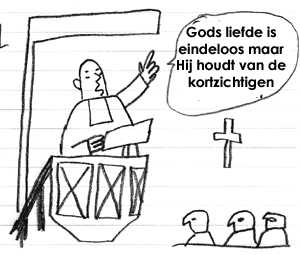 Gods liefde is
eindeloos maar
Hij houdt van de
kortzichtigen